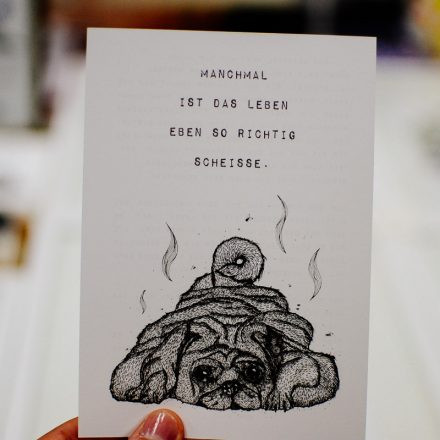 MANCHMAL
IST DAS LEBEN
EBEN SO RICHTIG
SCHEISSE.